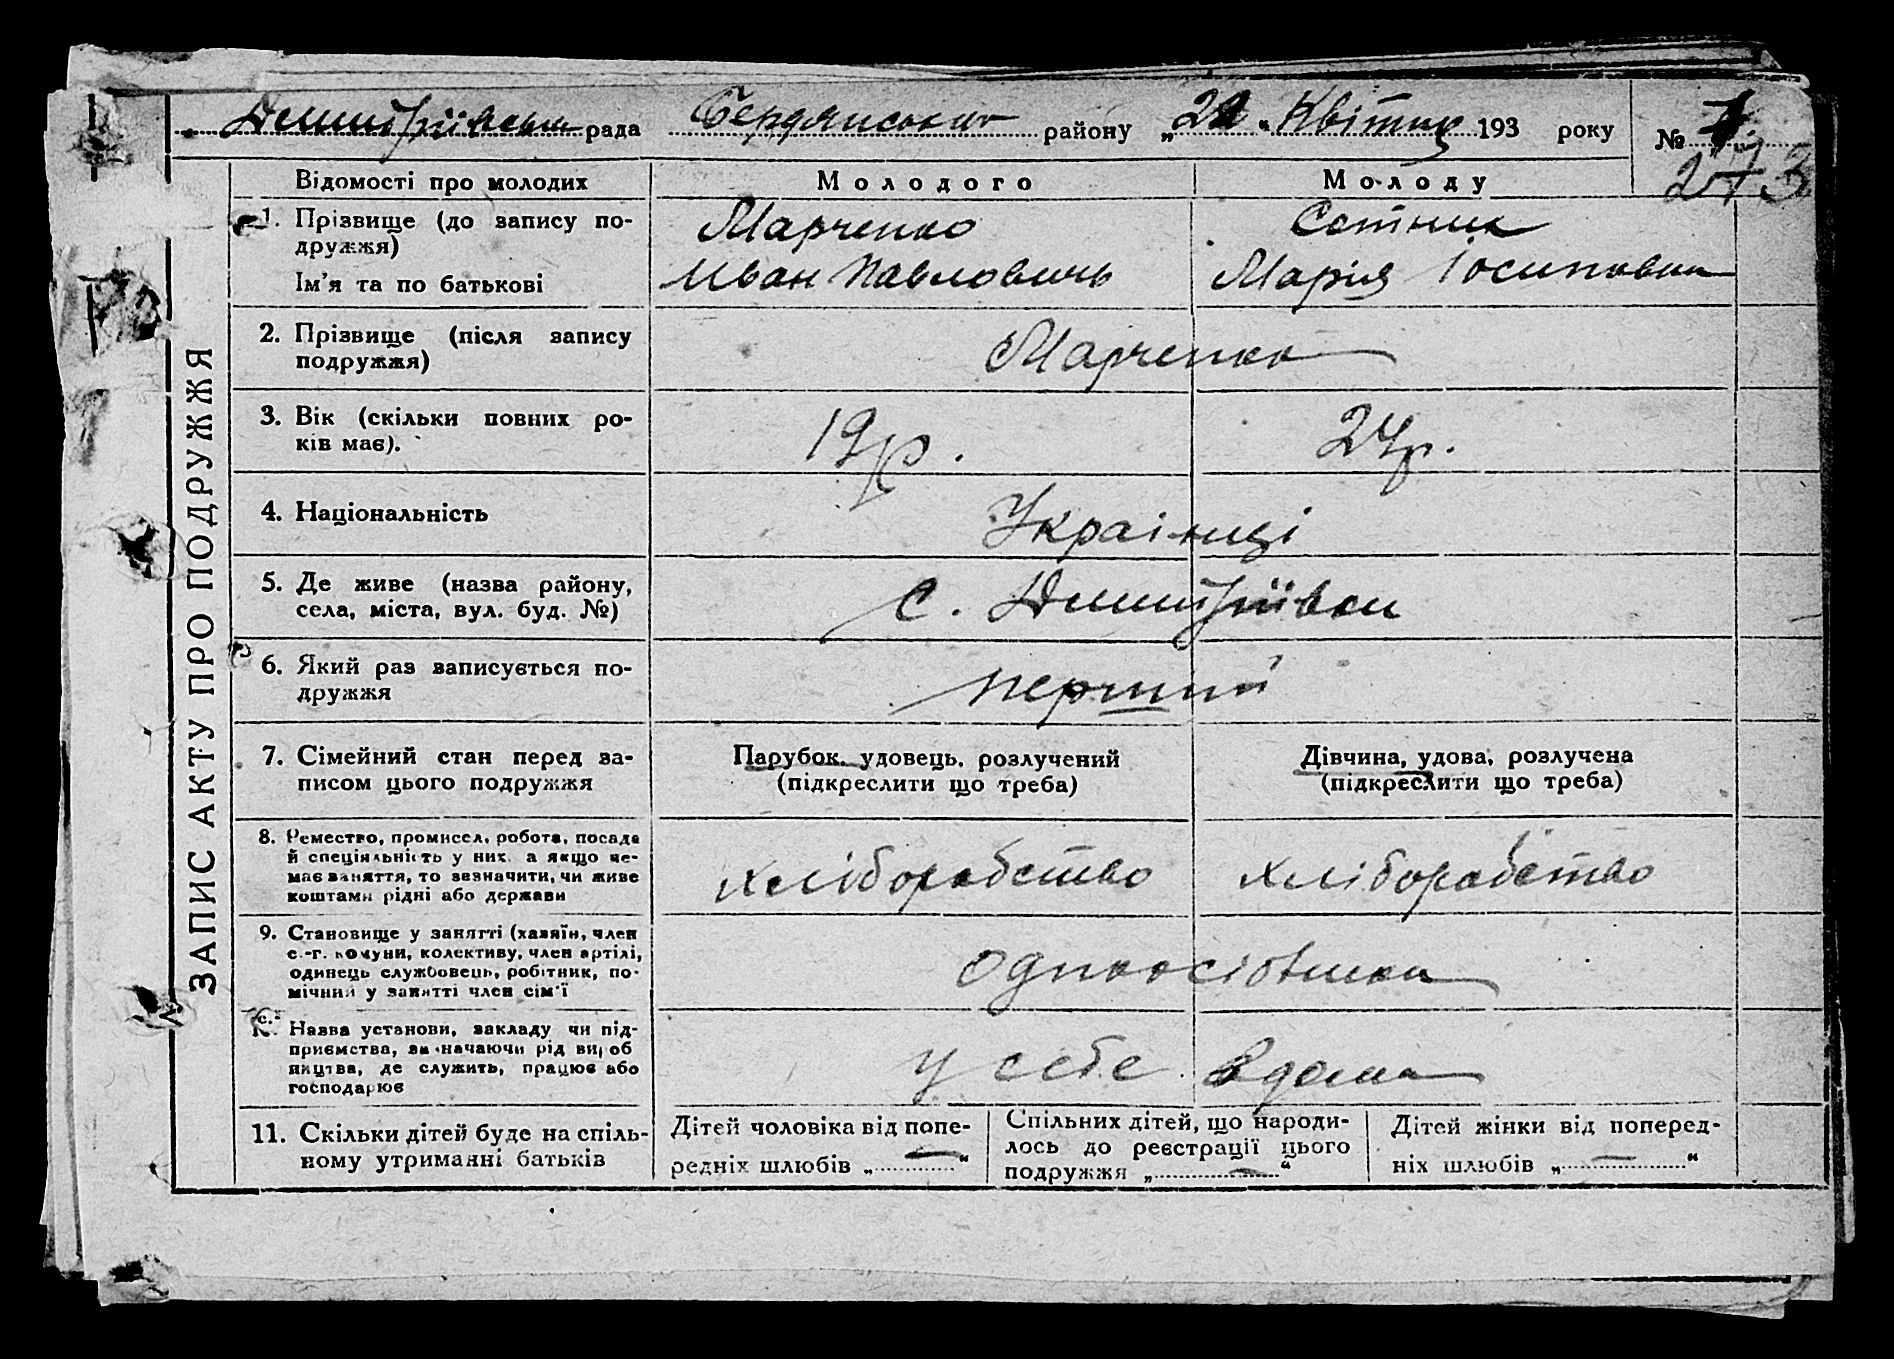 Дмитріівська рада Бердянського району „22 “ Квітня 193 року №
273
ЗАПИС АКТУ ПРО ПОДРУЖЖЯ
Відомості про молодих Молодого Молоду
1. Прізвище (до запису по- Марченко Сотник
дружжя)
Ім'я та по батькові Иван Павловичь Марія Іосиповна
2. Прізвище (після запису Марченко
подружжя)
3. Вік (скільки повних ро- 19 р. 24 р.
ків має).
4. Національність Украінці
5. Де живе (назва району, с. Дмитріівки
села, міста, вул. буд. №)
6. Який раз записується по- перший
дружжя
7. Сімейний стан перед за- Парубок, удовець, розлучений Дівчина, удова, розлучена
писом цього подружжя (підкреслити що треба) (підкреслити що треба)
8. Ремество, промисел, робота, посада
й спеціяльність у них, а якщо не- хліборобство хліборобство
має заняття, то зазначити, чи живе
коштами рідні або держави
9. Становище у занятті (хазяїн, член
с.-г. комуни, колективу, член артілі, одноосібники
одинець службовець, робітник, по-
мічний у занятті член сім'ї
10. Назва установи, закладу чи під-
приємства, зазначаючи рід вироб у себе вдома
ництва, де служить, працює або
господарює
11. Скільки дітей буде на спіль-
ному утриманні батьків
Дітей чоловіка від попе-
редніх шлюбів „ — “
Спільних дітей, що народи-
лось до реєстрації цього
подружжя „ — “
Дітей жінки від поперед-
ніх шлюбів „ — “